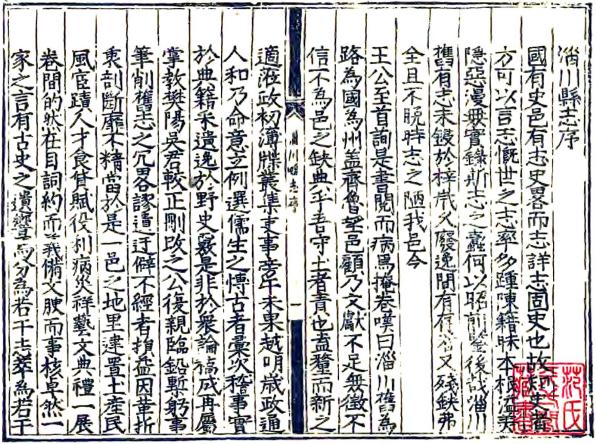 淄川縣志序
國有史邑有志史畧而志詳志固史也故秉史者
方可以言志慨世之志率多踵陳籍昧本根溢美
隱惡漫無實錄斯志之蠹何以昭前鑒後哉淄川
舊有志未鋟於梓歲久廢逸間有存者又殘缺弗
全且不脫時志之陋我邑令
王公至首詢是書閱而病焉掩卷嘆曰淄川舊為
路為國為州盖齊魯望邑顧乃文獻不足無徵不
信不為邑之缺典乎吾守土者責也盍釐而新之
適涖政初薄牒叢集吏事旁午未果越明歲政通
淄川縣志序 一
人和乃命意立例選儒生之慱古者彙次稽事實
於典籍采遺逸於野史覈是非於衆論稿成再屬
掌教樊陽吳君較正刪改之公復親臨鉛槧躬事
筆削舊志之冗畧謬遺迂僻不經者損益因革折
衷剖斷靡不精當於是一邑之地里建置土産民
風官蹟人才食貨賦役利病災祥藝文典禮一展
卷間的然在目詞約而義備文腴而事核卓然一
家之言有古史之遺響焉分為若干志萃為若干